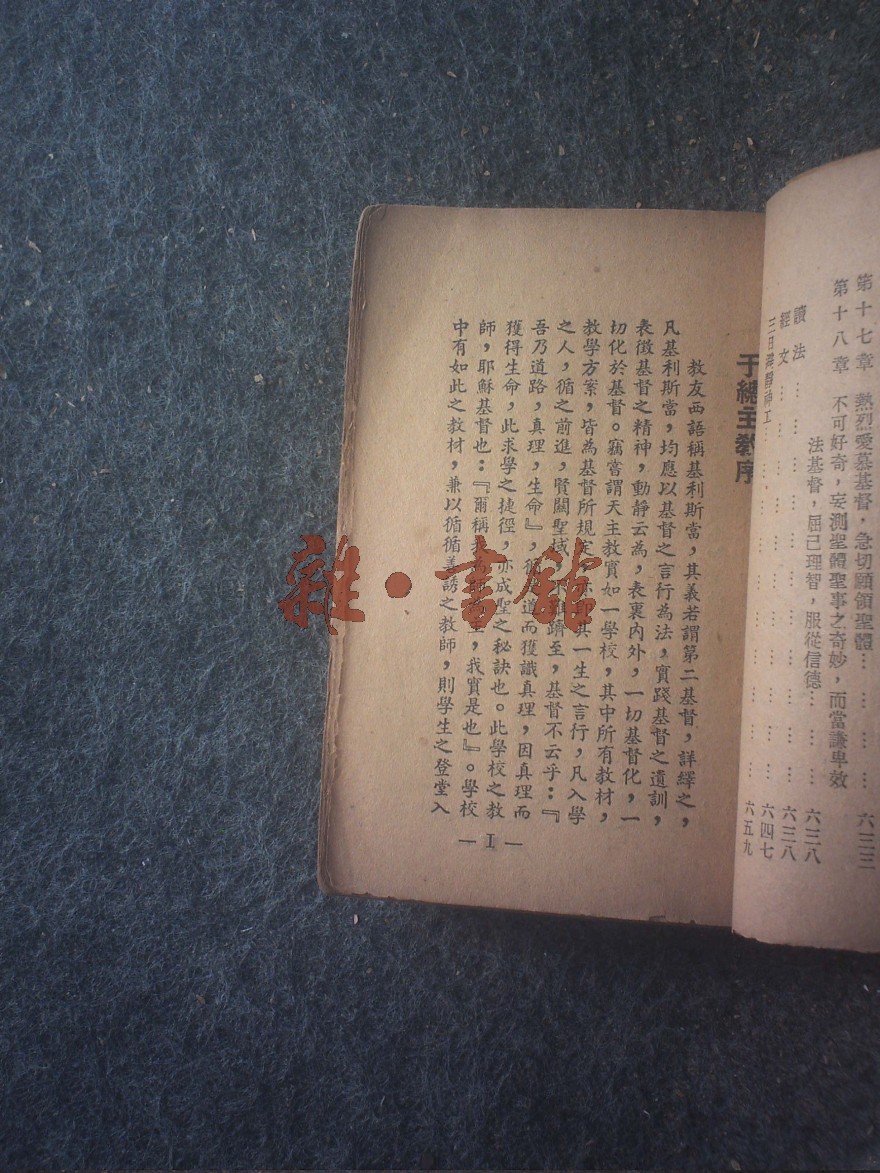 第十七章 熱烈愛慕基督，急切願領聖體… … … … … 六三三
第十八章 不可好奇，妄測聖體聖事之奇妙，而當謙卑效
法基督，屈己理智，服從信德… … … … 六三八
讀法… … … … … … … … … … 六三八
經文… … … … … … … … … … 六四七
三日避靜神工… … … … … … … … 六五九
于總主教序
教友西語稱基利斯當，其義若謂第二基督，詳繹之，
凡基利斯當，均應以基督之言行為法，實踐基督之遺訓，
表徵基督之精神，動靜云為，表裏內外，一切基督化，一
切化於基督。竊嘗謂天主教實如一學校，其中所有教材，
教學方案，皆為基督所規定，亦即其一生之言行，凡入學
之人，循之前進，賢關聖域，躋至，基督不云乎：『
吾乃道路，真理，生命』，循道而獲識真理，因真理而
獲得生命，此求學之捷徑，亦成聖之秘訣也。此學校之教
師，耶穌基督也：『爾稱我為師，主，我實是也』。學校
中有如此之教材，兼以循循善誘之教師，則學生之登堂入
— I —
雜·書館